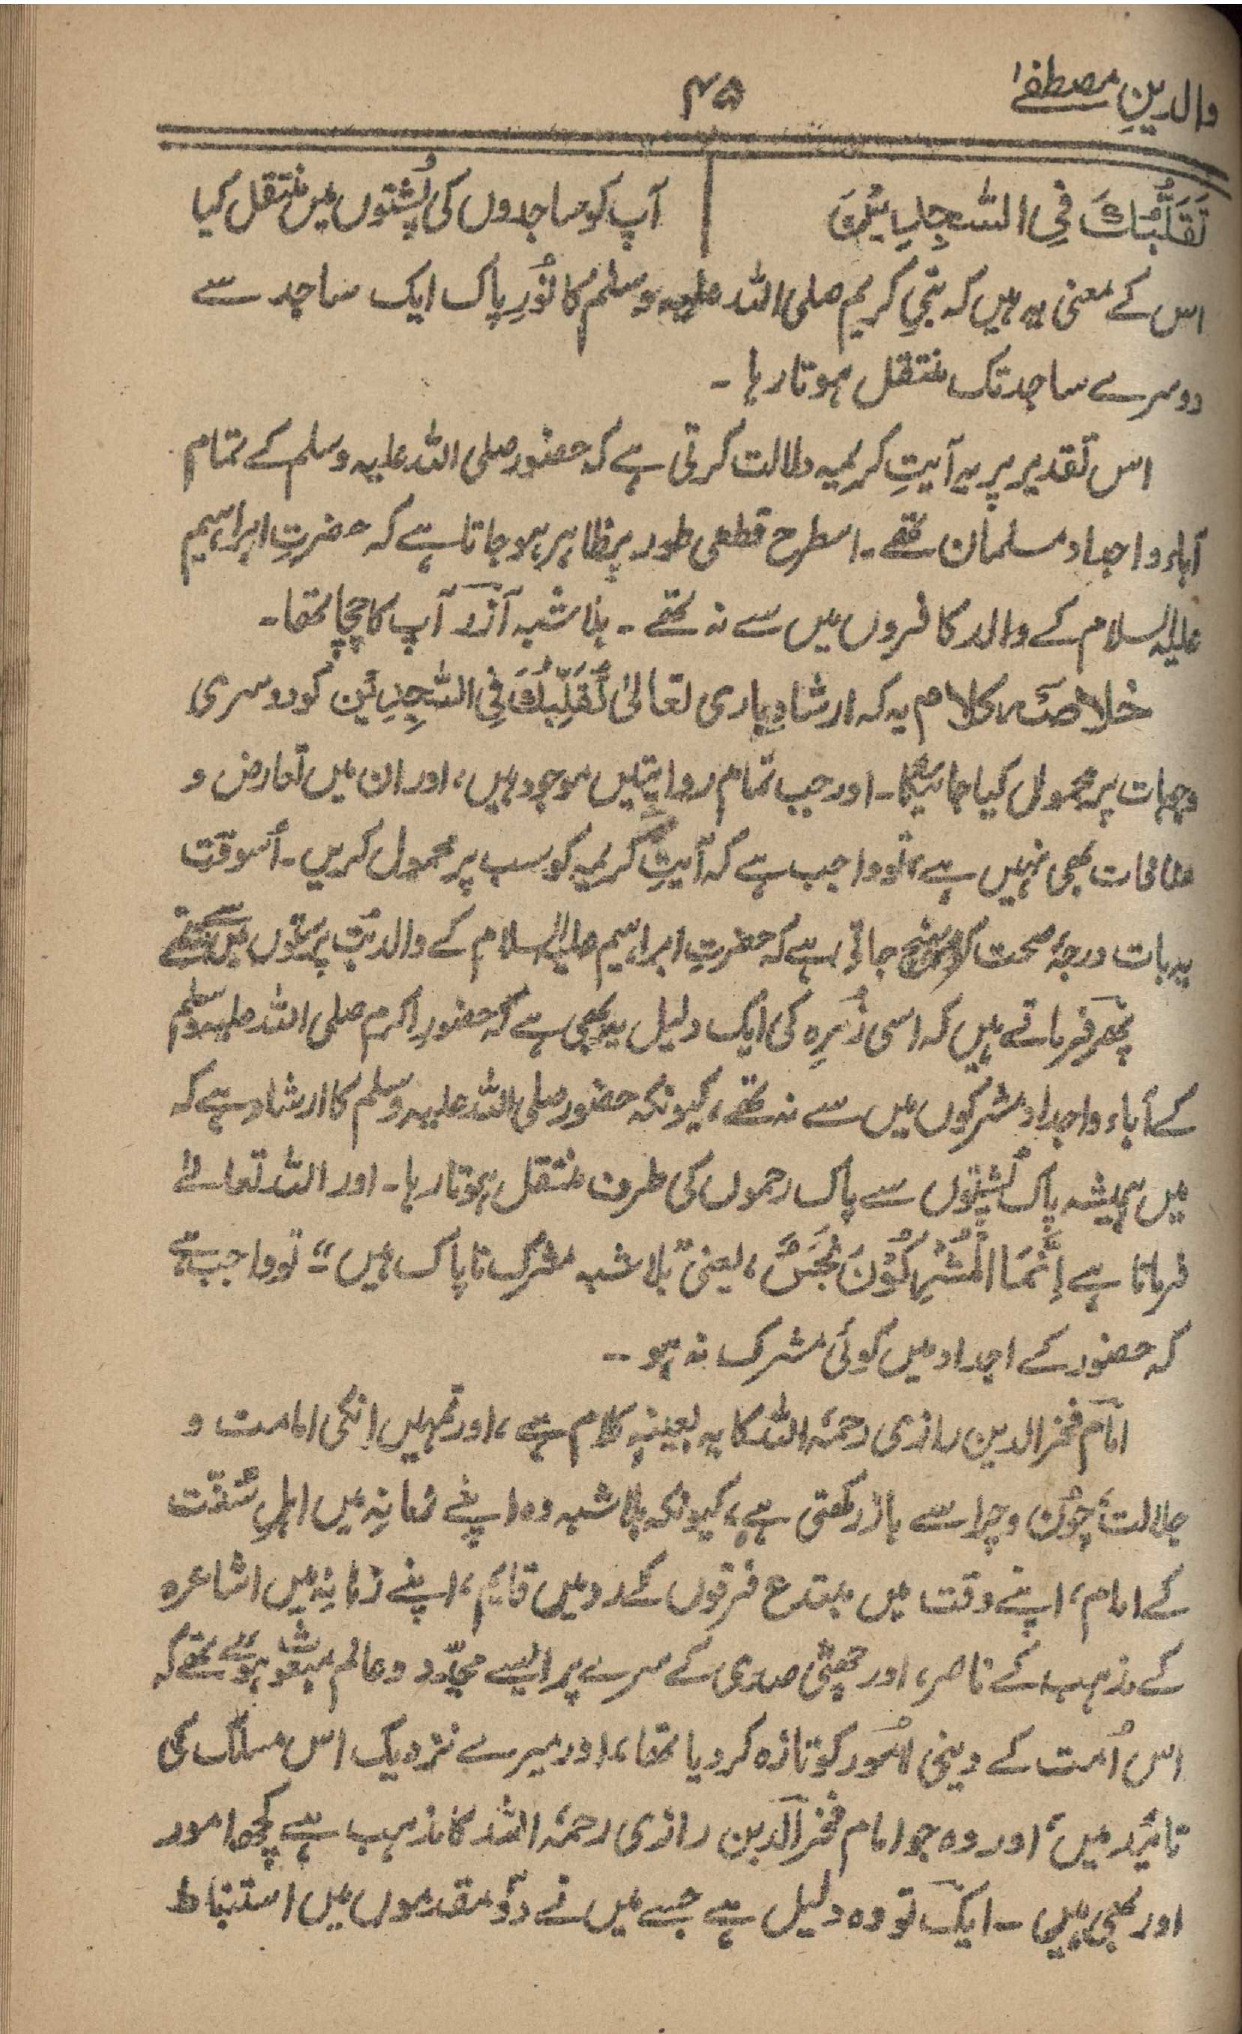 والدینِ مصطفےٰ
۴۵
تَقَلُّبَكَ فِی السّٰجِدِیْنَ
آپ کو ساجدوں کی پُشتوں میں منتقل کیا
اس کے معنی یہ ہیں کہ نبیِ کریم صلی اللہ علیہ وسلم کا نُورِ پاک ایک ساجد سے
دوسرے ساجد تک منتقل ہوتا رہا ۔
اس تقدیر پر یہ آیتِ کریمیہ دلالت کرتی ہے کہ حضور صلی اللہ علیہ وسلم کے تمام
آباء و اجداد مسلمان تھے ۔ اسطرح قطعی طور پر ظاہر ہو جاتا ہے کہ حضرتِ ابراہیم
علیہ السلام کے والد کافروں میں سے نہ تھے ۔ بلاشبہ آزر آپ کا چچا تھا ۔
خلاصۂ کلام یہ کہ ارشادِ باری تعالیٰ تَقَلُّبَكَ فِی السّٰجِدِیْن کو دوسری
وجہات پر محمول کیا جائیگا ۔ اور جب تمام روایتیں موجود ہیں، اور ان میں تعارض و
منافات بھی نہیں ہے، تو واجب ہے کہ آیتِ کریمہ کو سب پر محمول کریں ۔ اُسوقت
یہ بات درجۂ صحت کو پہنچ جاتی ہے کہ حضرتِ ابراہیم علیہ السلام کے والد بُت پرستوں میں سے نہ تھے
پھر فرماتے ہیں کہ اسی زُمرہ کی ایک دلیل یہ بھی ہے کہ حضورِ اکرم صلی اللہ علیہ وسلم
کے آباء و اجداد مشرکوں میں سے نہ تھے، کیونکہ حضور صلی اللہ علیہ وسلم کا ارشاد ہے کہ
میں ہمیشہ پاک پُشتوں سے پاک رحموں کی طرف منتقل ہوتا رہا ۔ اور اللہ تعالےٰ
فرماتا ہے اِنَّمَا الْمُشْرِكُوْنَ نَجَسٌ، یعنی بلا شبہ مشرک ناپاک ہیں“ تو واجب ہے
کہ حضور کے اجداد میں کوئی مشرک نہ ہو ۔۔
امام فخر الدین رازی رحمۃ اللہ کا یہ بعینہٖ کلام ہے، اور تمہیں انکی امامت و
جلالت، چُون و چرا سے باز رکھتی ہے، کیونکہ بلا شبہ وہ اپنے زمانہ میں اہلِ سُنّت
کے امام، اپنے وقت میں مبتدع فرقوں کے رد میں قایم، اپنے زمانہ میں اشاعرہ
کے مذہب کے ناصر، اور چھٹی صدی کے سرے پر ایسے مجدّد و عالم مبعوث ہوئے تھے کہ
اس اُمت کے دینی اُمُور کو تازہ کر دیا تھا، اور میرے نزدیک اس مسلک کی
تائید میں، اور وہ جو امام فخر الدین رازی رحمۃ اللہ کا مذہب ہے کچھ امور
اور بھی ہیں ۔ ایک تو وہ دلیل ہے جسے میں نے دو مقدموں میں استنباط